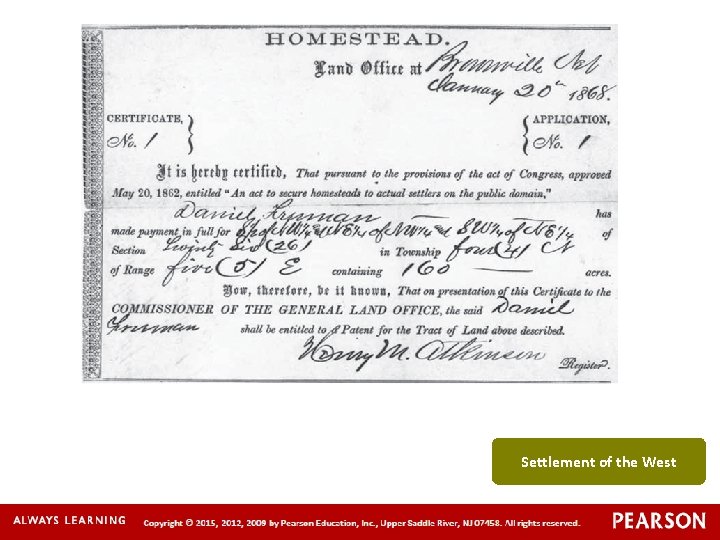 HOMESTEAD.
Land Office at Brownville Neb
January 20th 1868.
CERTIFICATE, No. 1 } { APPLICATION, No. 1
It is hereby certified, That pursuant to the provisions of the act of Congress, approved
May 20, 1862, entitled "An act to secure homesteads to actual settlers on the public domain,"
Daniel Freeman has
made payment in full for S½ of NW¼ & NE¼ of NW¼ and SW¼ of NE¼ of
Section Twenty Six (26) in Township four (4) N
of Range five (5) E containing 160 acres.
Now, therefore, be it known, That on presentation of this Certificate to the
COMMISSIONER OF THE GENERAL LAND OFFICE, the said Daniel
Freeman shall be entitled to a Patent for the Tract of Land above described.
Henry M. Atkinson
Register.
Settlement of the West
ALWAYS LEARNING Copyright © 2015, 2012, 2009 by Pearson Education, Inc., Upper Saddle River, NJ 07458. All rights reserved. PEARSON